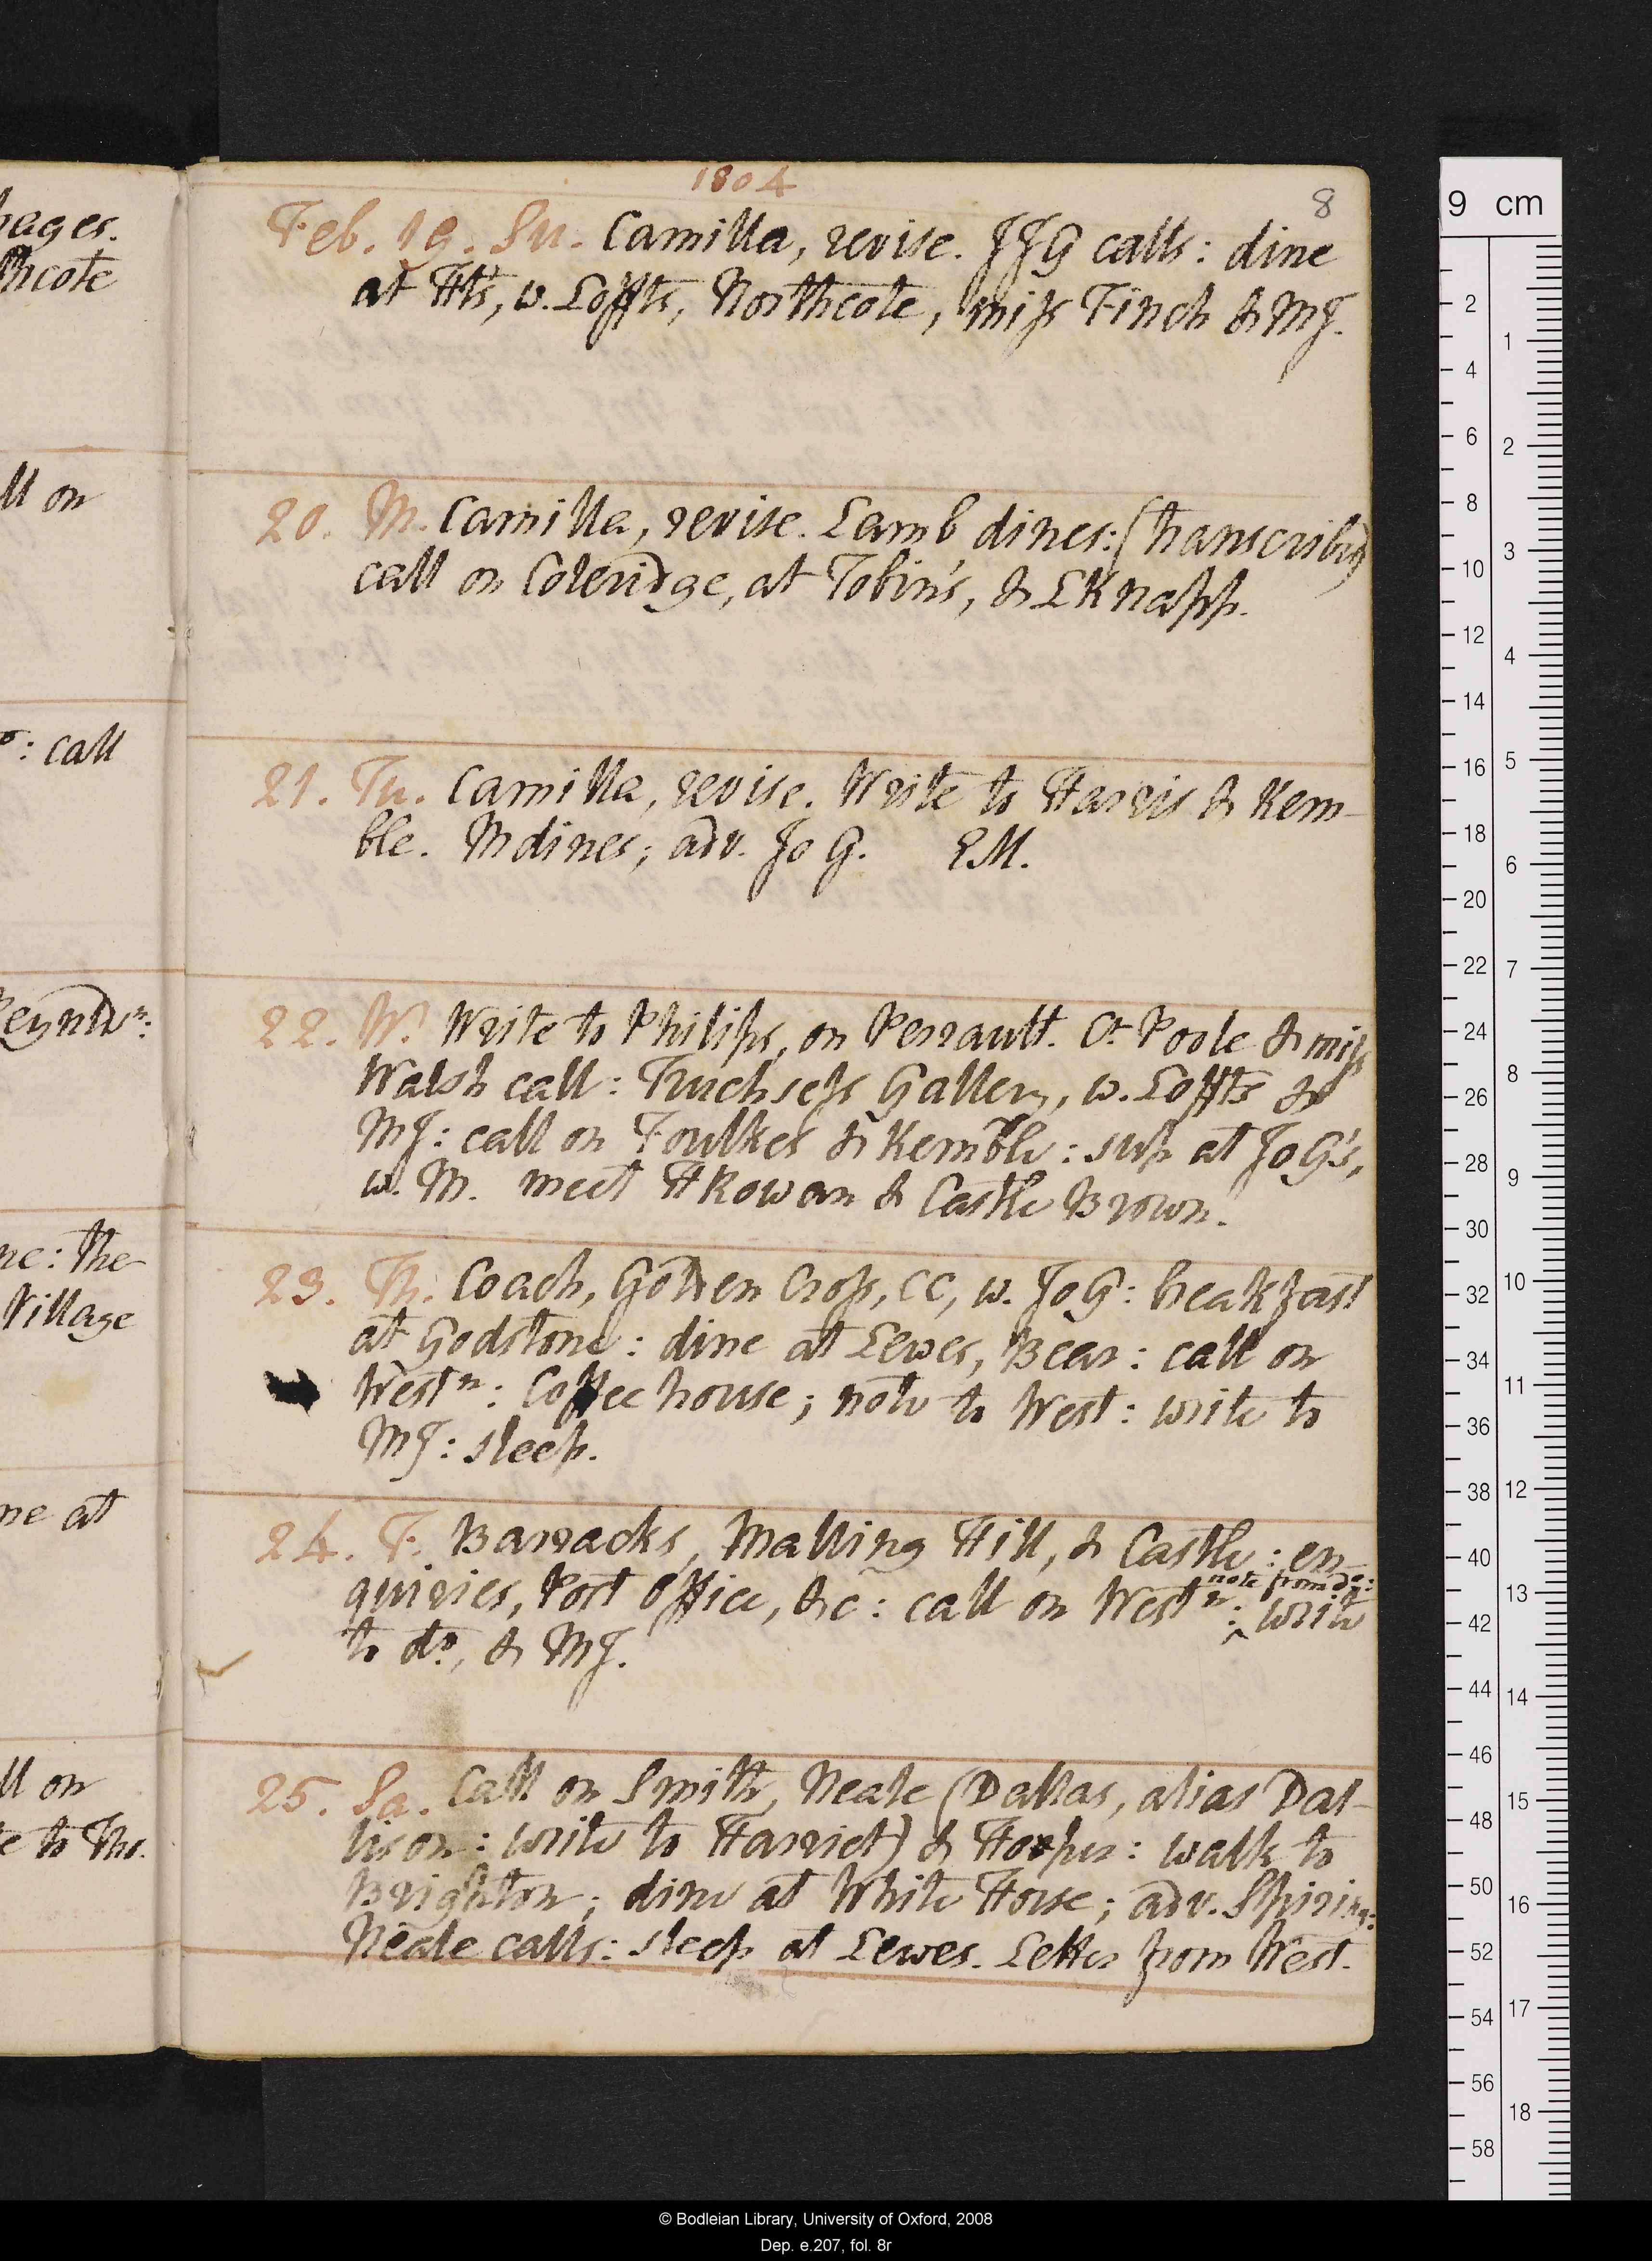 hages.
thcote
ll on
o: call
Reynldsn:
ne: the
Village
ne at
ll on
te to Tho.
1804
8
Feb. 19. Su. Camilla, revise. JJG calls: dine
at Hts, w. Loffts, Northcote, miss Finch & MJ.
20. M. Camilla, revise. Lamb dines: (transcribes)
call on Coleridge, at Tobin's, & LKnapp.
21. Tu. Camilla, revise. Write to Harris & Kem-
ble. M dines; adv. Jo G. EM.
22. W. Write to Philips, on Perrault. Ct Poole & miss
Walsh call: Truchsess Gallery, w. Loffts &
MJ: call on Foulkes & Kemble: sup at JoG's,
w. M. meet HRowan & Castle Brown.
23. Th. Coach, Golden Cross, CC, w. JoG: breakfast
at Godstone: dine at Lewes, Bear: call on
Westn: Coffee house; note to West: write to
MJ: sleep.
24. F. Barracks, Malling Hill, & Castle: en-
quiries, Post Office, &c: call on Westn: note from do: write
to do, & MJ.
25. Sa. Call on Smith, Neale (Dallas, alias Dal-
lison: write to Harriet) & Horper: walk to
Brighton; dine at White Horse; adv. Spiring:
Neale calls: sleep at Lewes. Letter from West.
9 cm
2
4
6
8
10
12
14
16
18
20
22
24
26
28
30
32
34
36
38
40
42
44
46
48
50
52
54
56
58
1
2
3
4
5
6
7
8
9
10
11
12
13
14
15
16
17
18
© Bodleian Library, University of Oxford, 2008
Dep. e.207, fol. 8r